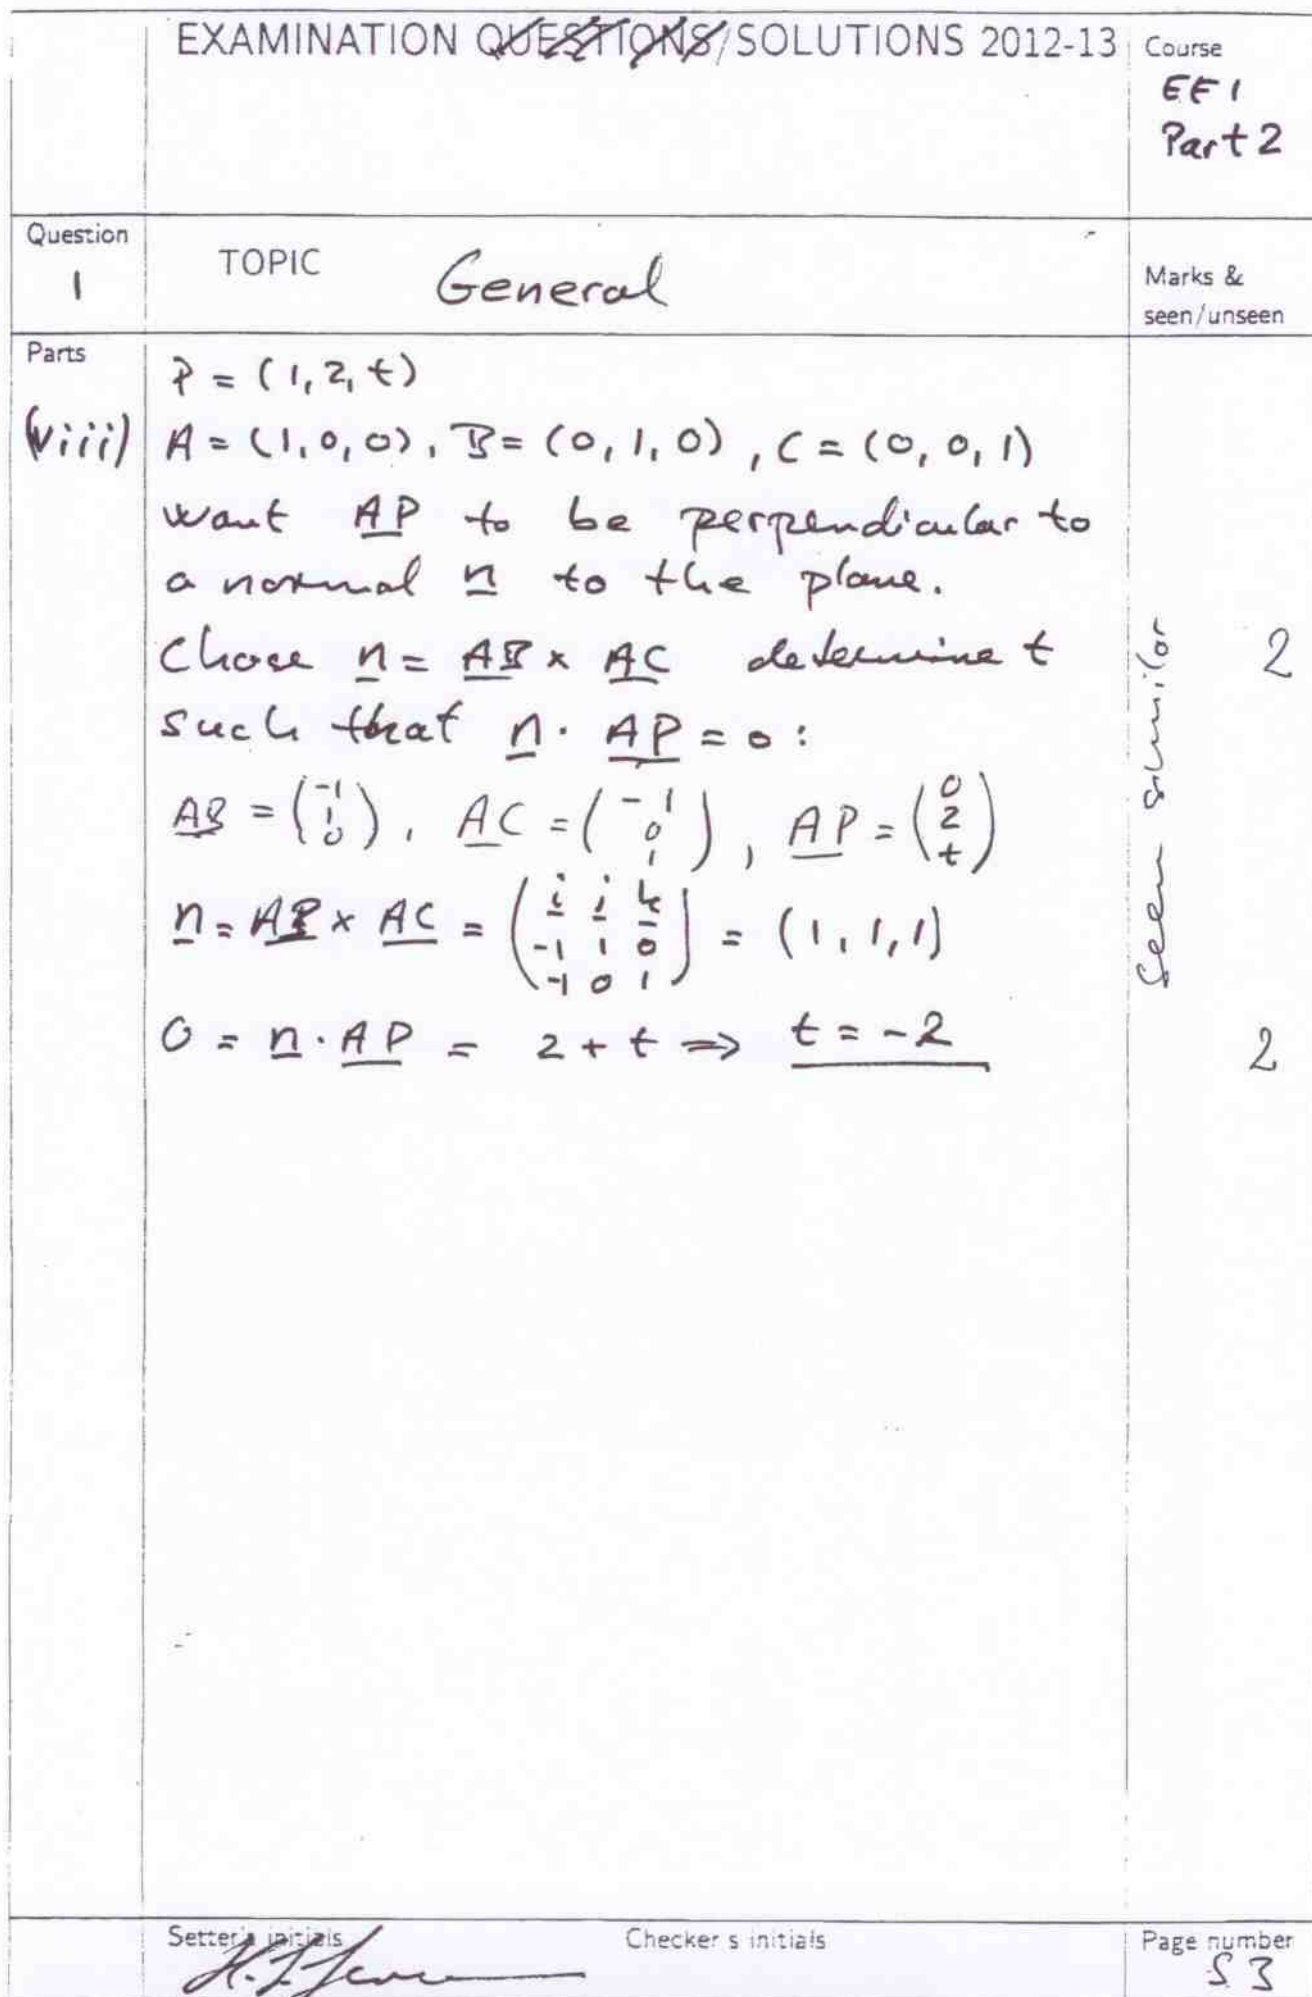 EXAMINATION QUESTIONS/SOLUTIONS 2012-13
Course
EE1
Part 2
Question
1
TOPIC General
Marks &
seen/unseen
Parts
(viii)
P = (1, 2, t)
A = (1, 0, 0), B = (0, 1, 0), C = (0, 0, 1)
want AP to be perpendicular to
a normal n to the plane.
Chose n = AB × AC determine t
such that n · AP = 0 :
AB = (-1 1 0), AC = (-1 0 1), AP = (0 2 t)
n = AB × AC = (i j k -1 1 0 -1 0 1) = (1, 1, 1)
0 = n · AP = 2 + t ⇒ t = -2
seen similar
2
2
Setter's initials
Checker s initials
Page number
S3